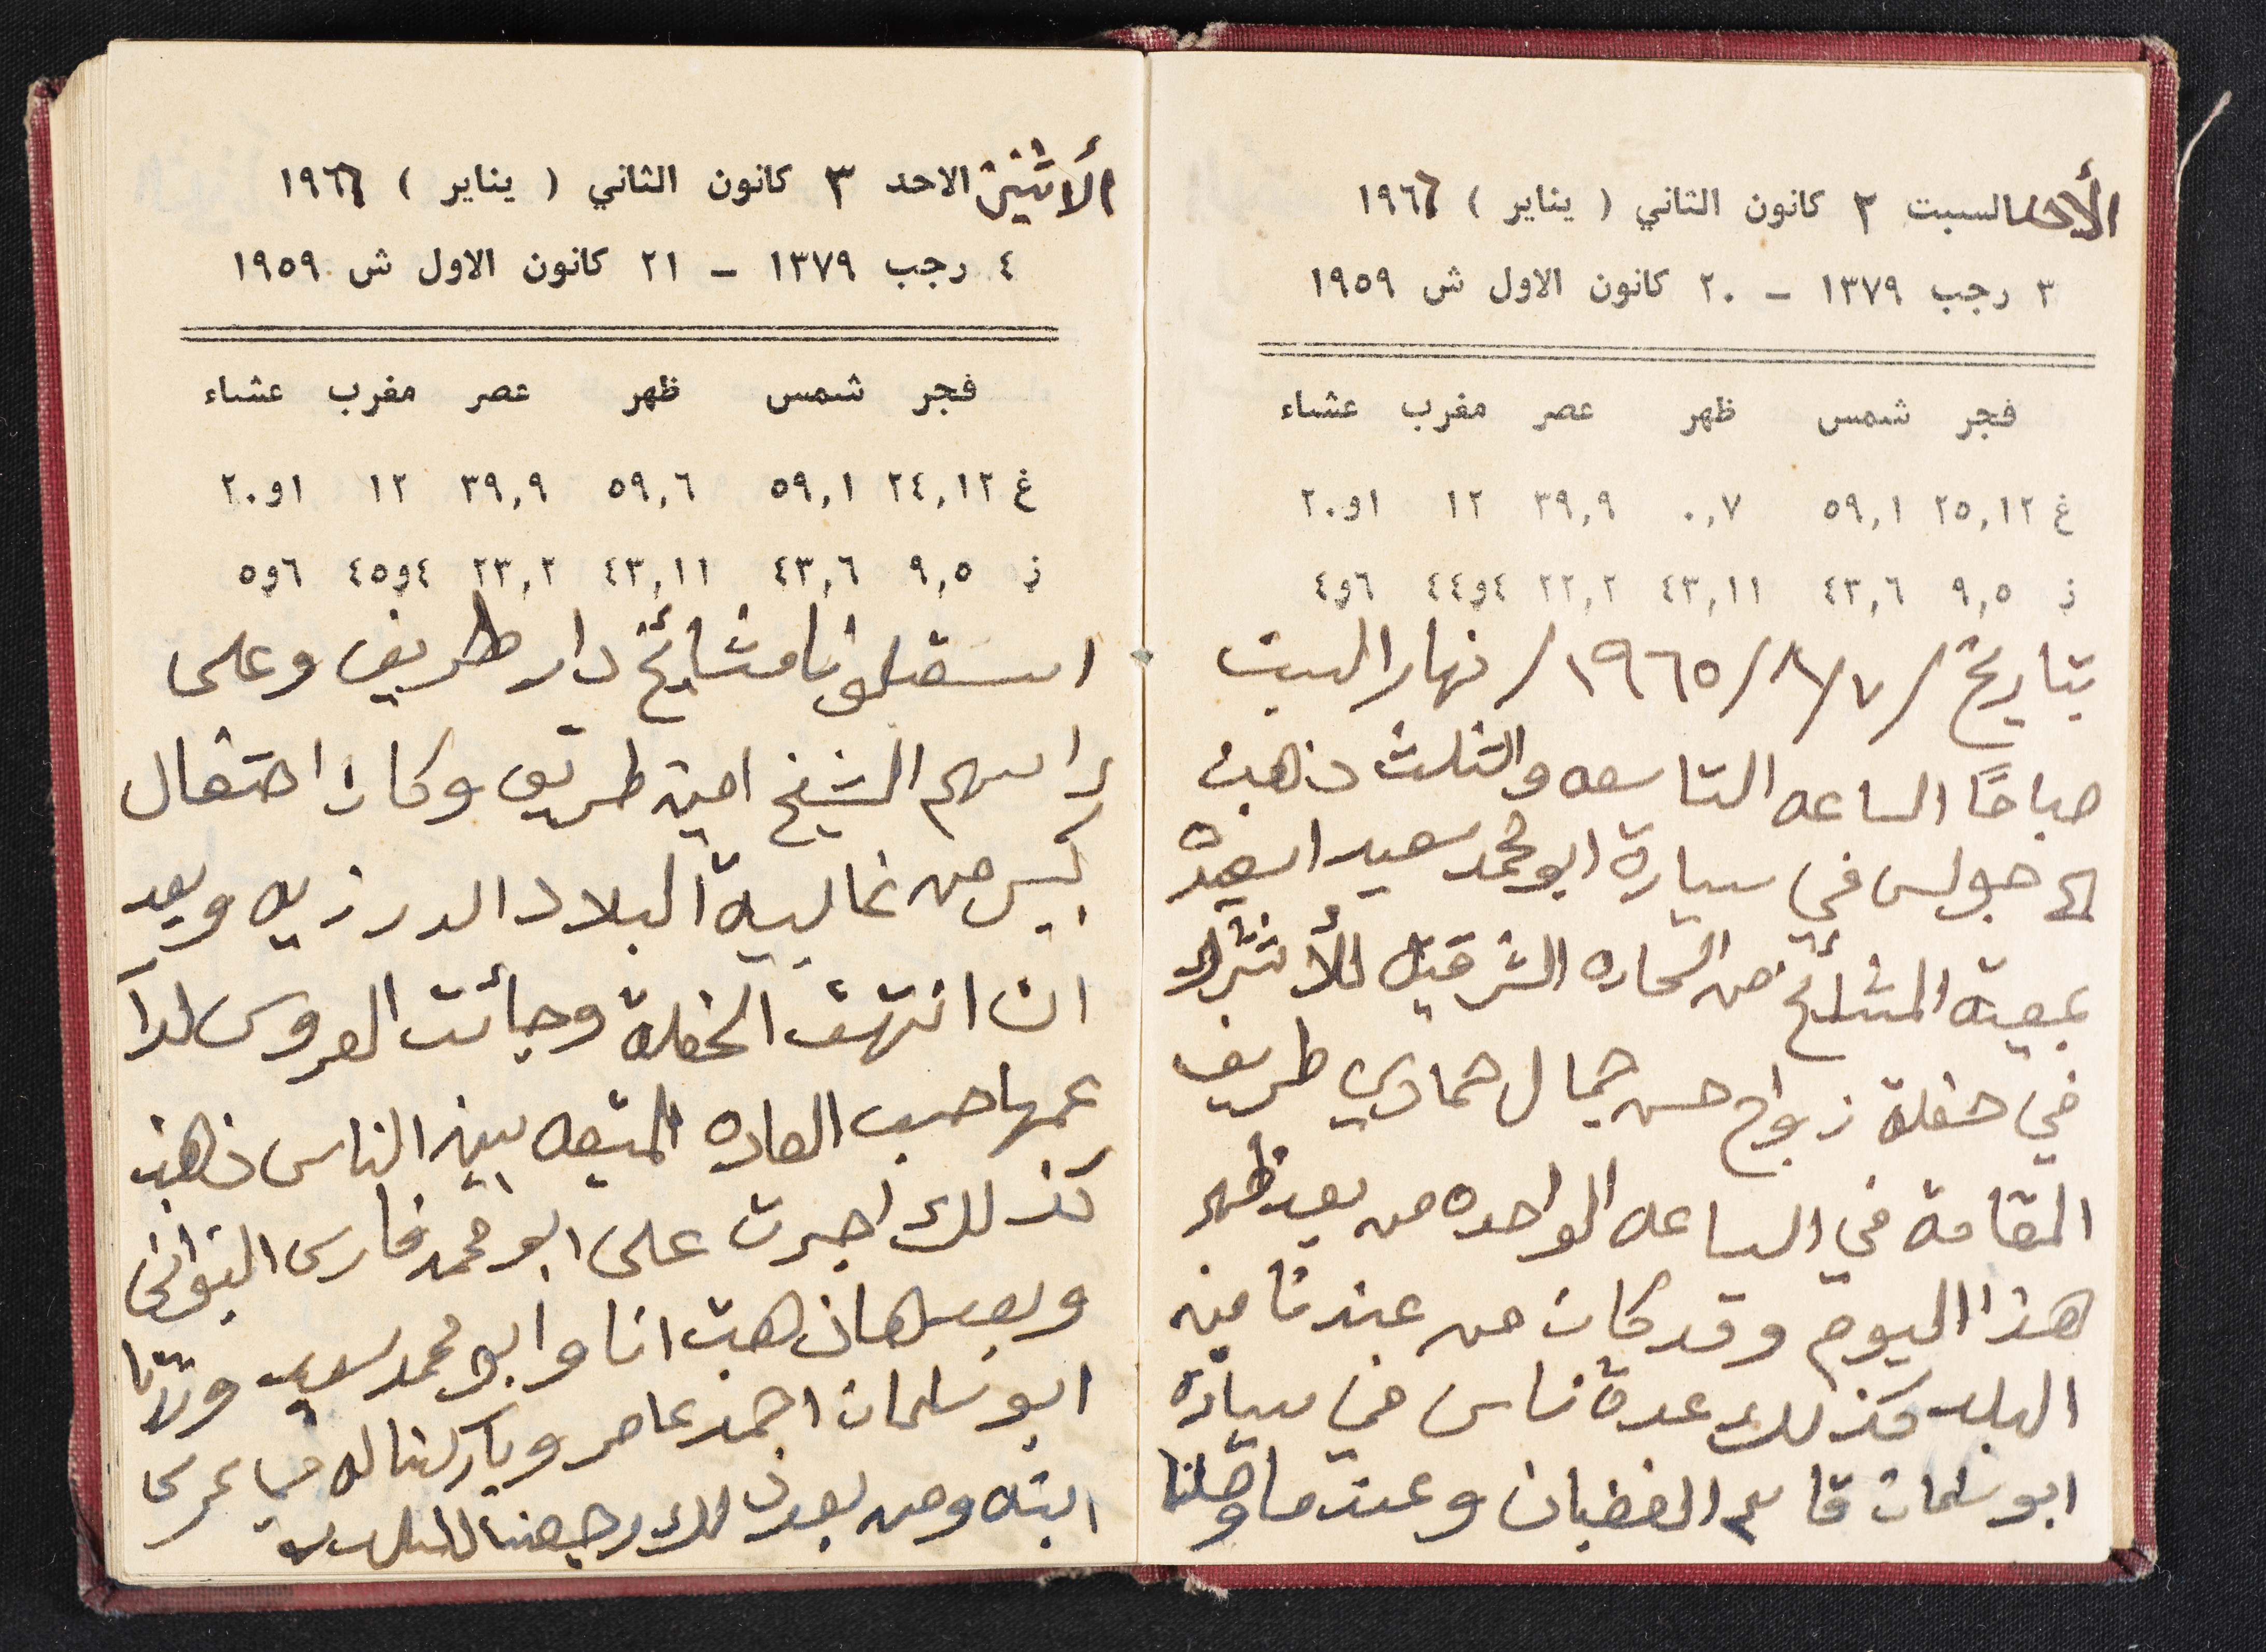 الأحد السبت ٢ كانون الثاني ( يناير ) ١٩٦٦
٣ رجب ١٣٧٩ – ٢٠ كانون الاول ش ١٩٥٩
فجر شمس ظهر عصر مغرب عشاء
غ ٢٥,١٢ ٥٩,١ ٠,٧ ٣٩,٩ ١٢ ١و٢٠
ز ٩,٥ ٤٣,٦ ٤٣,١١ ٢٢,٢ ٤و٤٤ ٦و٤
بتاريخ /٧/٨/١٩٦٥/ نهار السبت
صباحًا الساعه التاسعه والثلث ذهبت
الى جولس في سيارة ابو محمد سعيد اسعيد
بمعية المشائخ من الحاره الشرقيه للأشتراك
في حفلة زواج حسن جمال حمادي طريف
المقامة في الساعه الواحده من بعد ظهر
هذا اليوم وقد كان من عندنا من
البلد كذلك عدة ناس في سيارة
ابو سلمان قاسم الغضبان وعندما وصلنا
الأثنين الاحد ٣ كانون الثاني ( يناير ) ١٩٦٦
٤ رجب ١٣٧٩ – ٢١ كانون الاول ش ١٩٥٩
فجر شمس ظهر عصر مغرب عشاء
غ ٢٤,١٢ ٥٩,١ ٥٩,٦ ٣٩,٩ ١٢ ١و٢٠
ز ٩,٥ ٤٣,٦ ٤٣,١١ ٢٣,٢ ٤و٤٥ ٦و٥
استقبلونا مشائخ دار طريف وعلى
راسهم الشيخ امين طريف وكان احتفال
كبير من غالبية البلاد الدرزيه وبعد
ان انتهت الحفلة وجائت العروس لدا
عمها حسب العاده المتبعه بين الناس ذهبت
كذلك اجرت على ابو محمد فارس
وبعدها ذهبت انا وابو محمد سعيد وزرنا
ابو سلمان احمد عامر وباركنا له في عرس
ابنه ومن بعد ذلك رجعنا للبلد